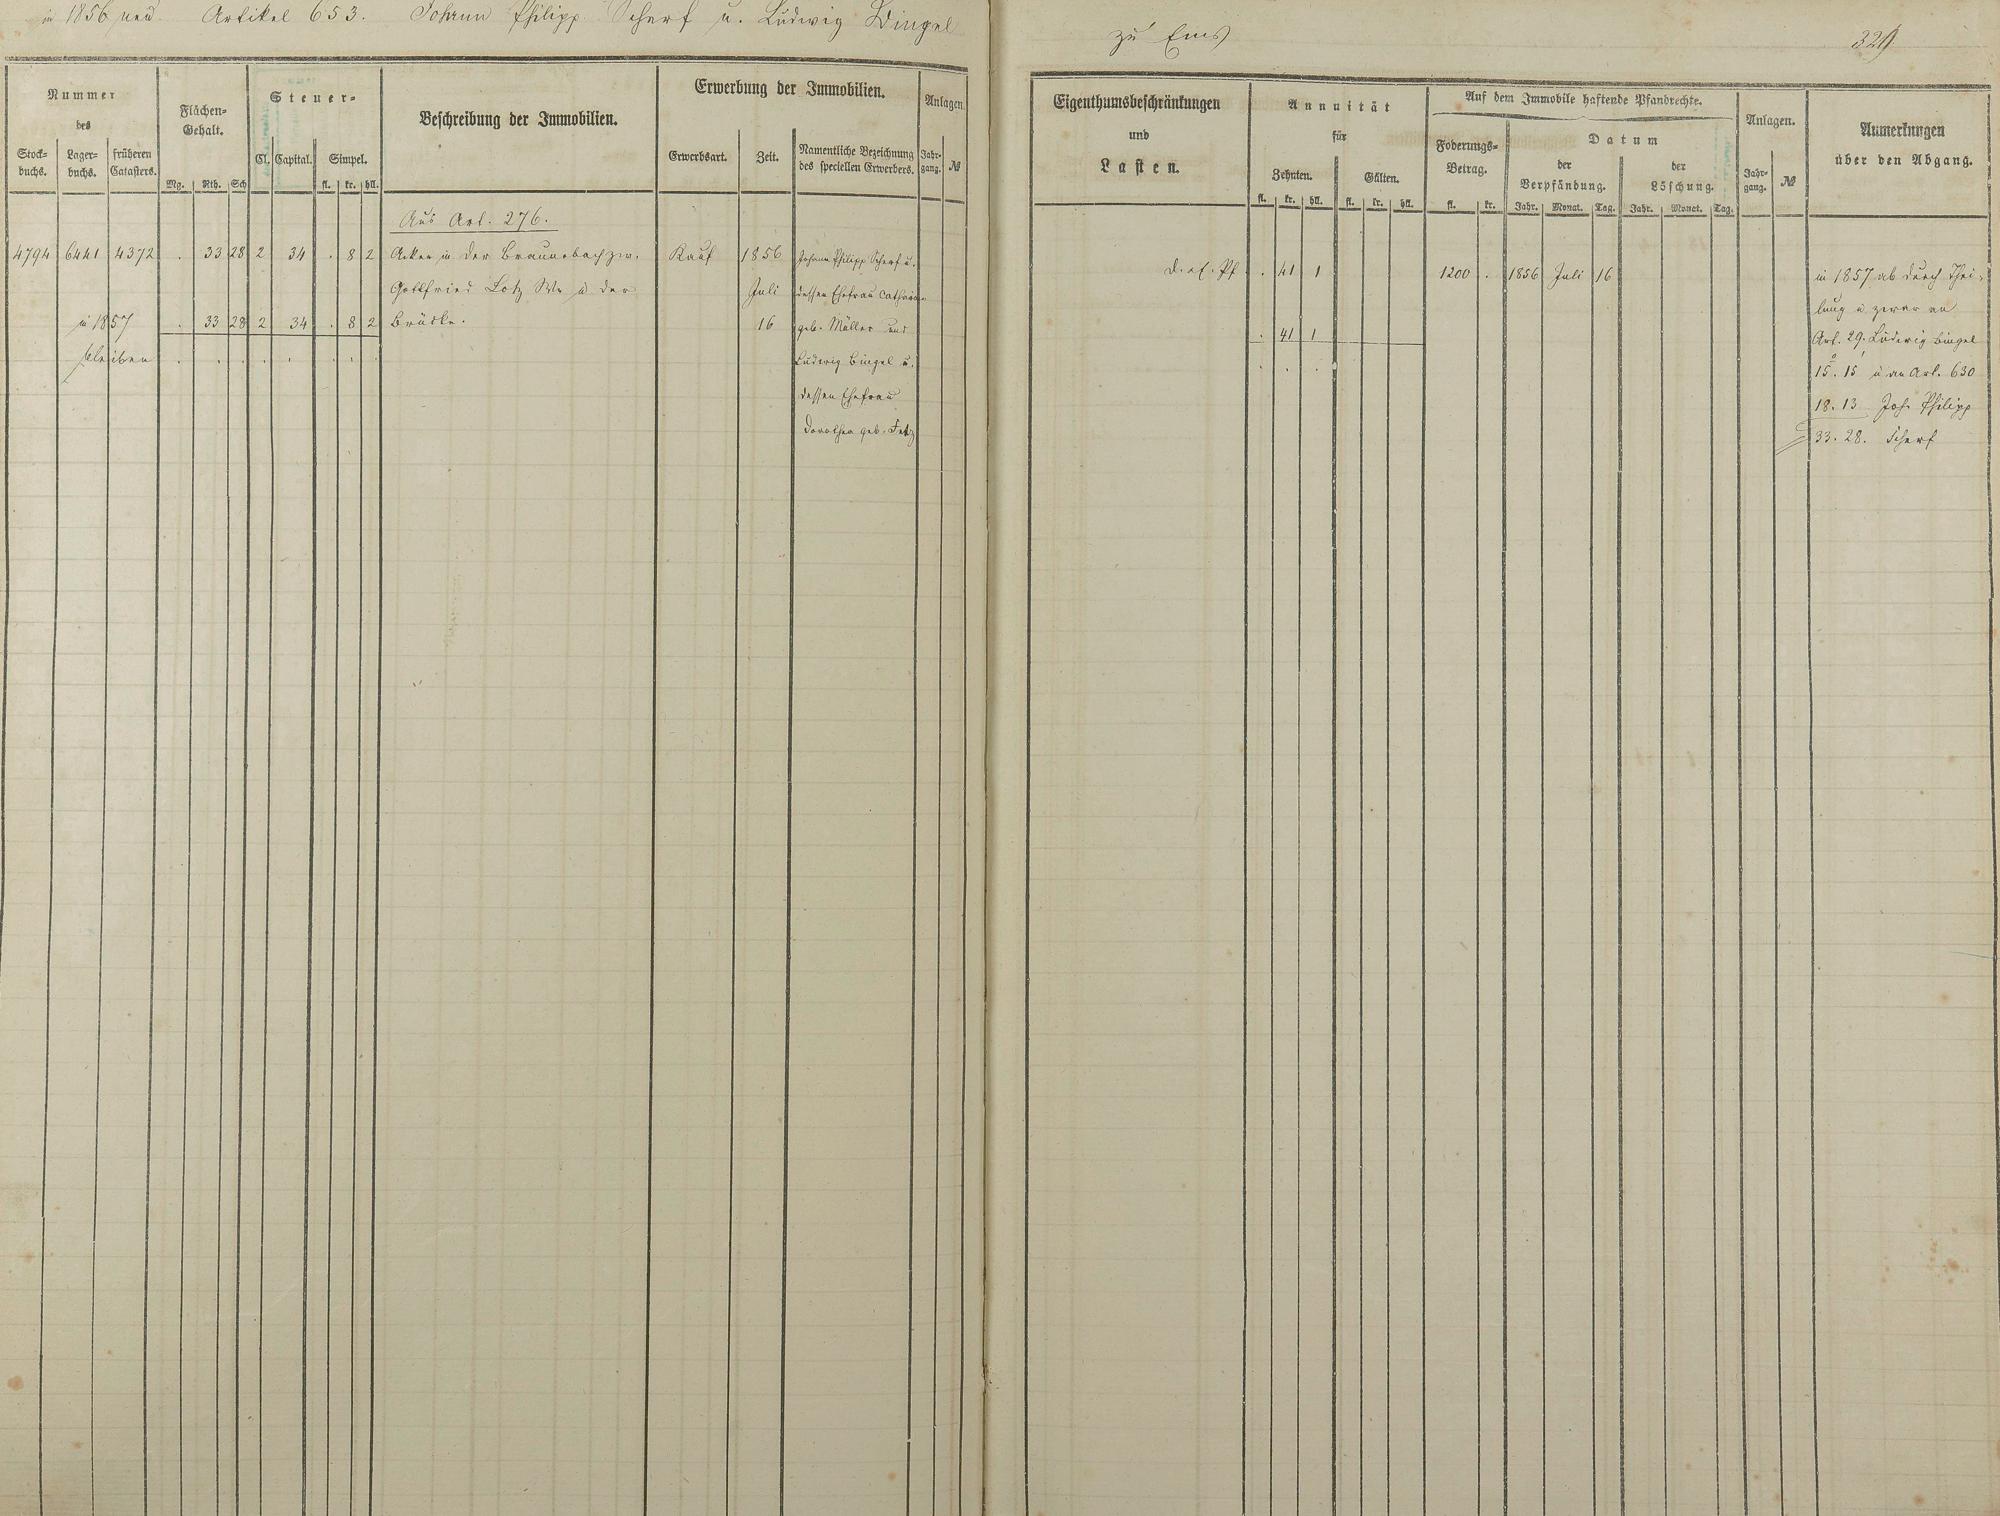 in 1856 neu. Artikel 653. Johann Philipp Scherf u. Ludwig Bingel
zu Ems
329
Nummer
des
Stock-
buchs.
Lager-
buchs.
früheren
Catasters.
Flächen-
Gehalt.
Mg. Rth. Sch
Steuer-
Cl. Capital. Simpel.
fl. kr. hll.
Beschreibung der Immobilien.
Erwerbung der Immobilien.
Erwerbsart. Zeit.
Namentliche Bezeichnung
des speciellen Erwerbers.
Anlagen.
Jahr-
gang. №
Eigenthumsbeschränkungen
und
Lasten.
Annuität
für
Zehnten. Gülten.
fl. kr. hll. fl. kr. hll.
Auf dem Immobile haftende Pfandrechte.
Foderungs-
Betrag.
fl. kr.
Datum
der
Verpfändung.
Jahr. Monat. Tag.
der
Löschung.
Jahr. Monat. Tag.
Anlagen.
Jahr-
gang. №
Anmerkungen
über den Abgang.
Aus Art. 276.
4794 6441 4372 . 33 28 2 34 . 8 2 Acker in der Braunebach zw. Kauf 1856 Johann Philipp Scherf u.
Gottfried Lotz We u. der Juli dessen Ehefrau Catharina
in 1857 . 33 28 2 34 . 8 2 Brücke. 16 geb. Müller und
bleiben . . . . . . . Ludwig Bingel u.
dessen Ehefrau
Dorothea geb.
. 41 1 1200 . 1856 Juli 16 in 1857 ab durch Thei-
lung u. zwar an
. 41 1 Art. 29. Ludwig Bingel
. . . 15. 15 u an Art. 630
18. 13 Joh. Philipp
33. 28. Scherf